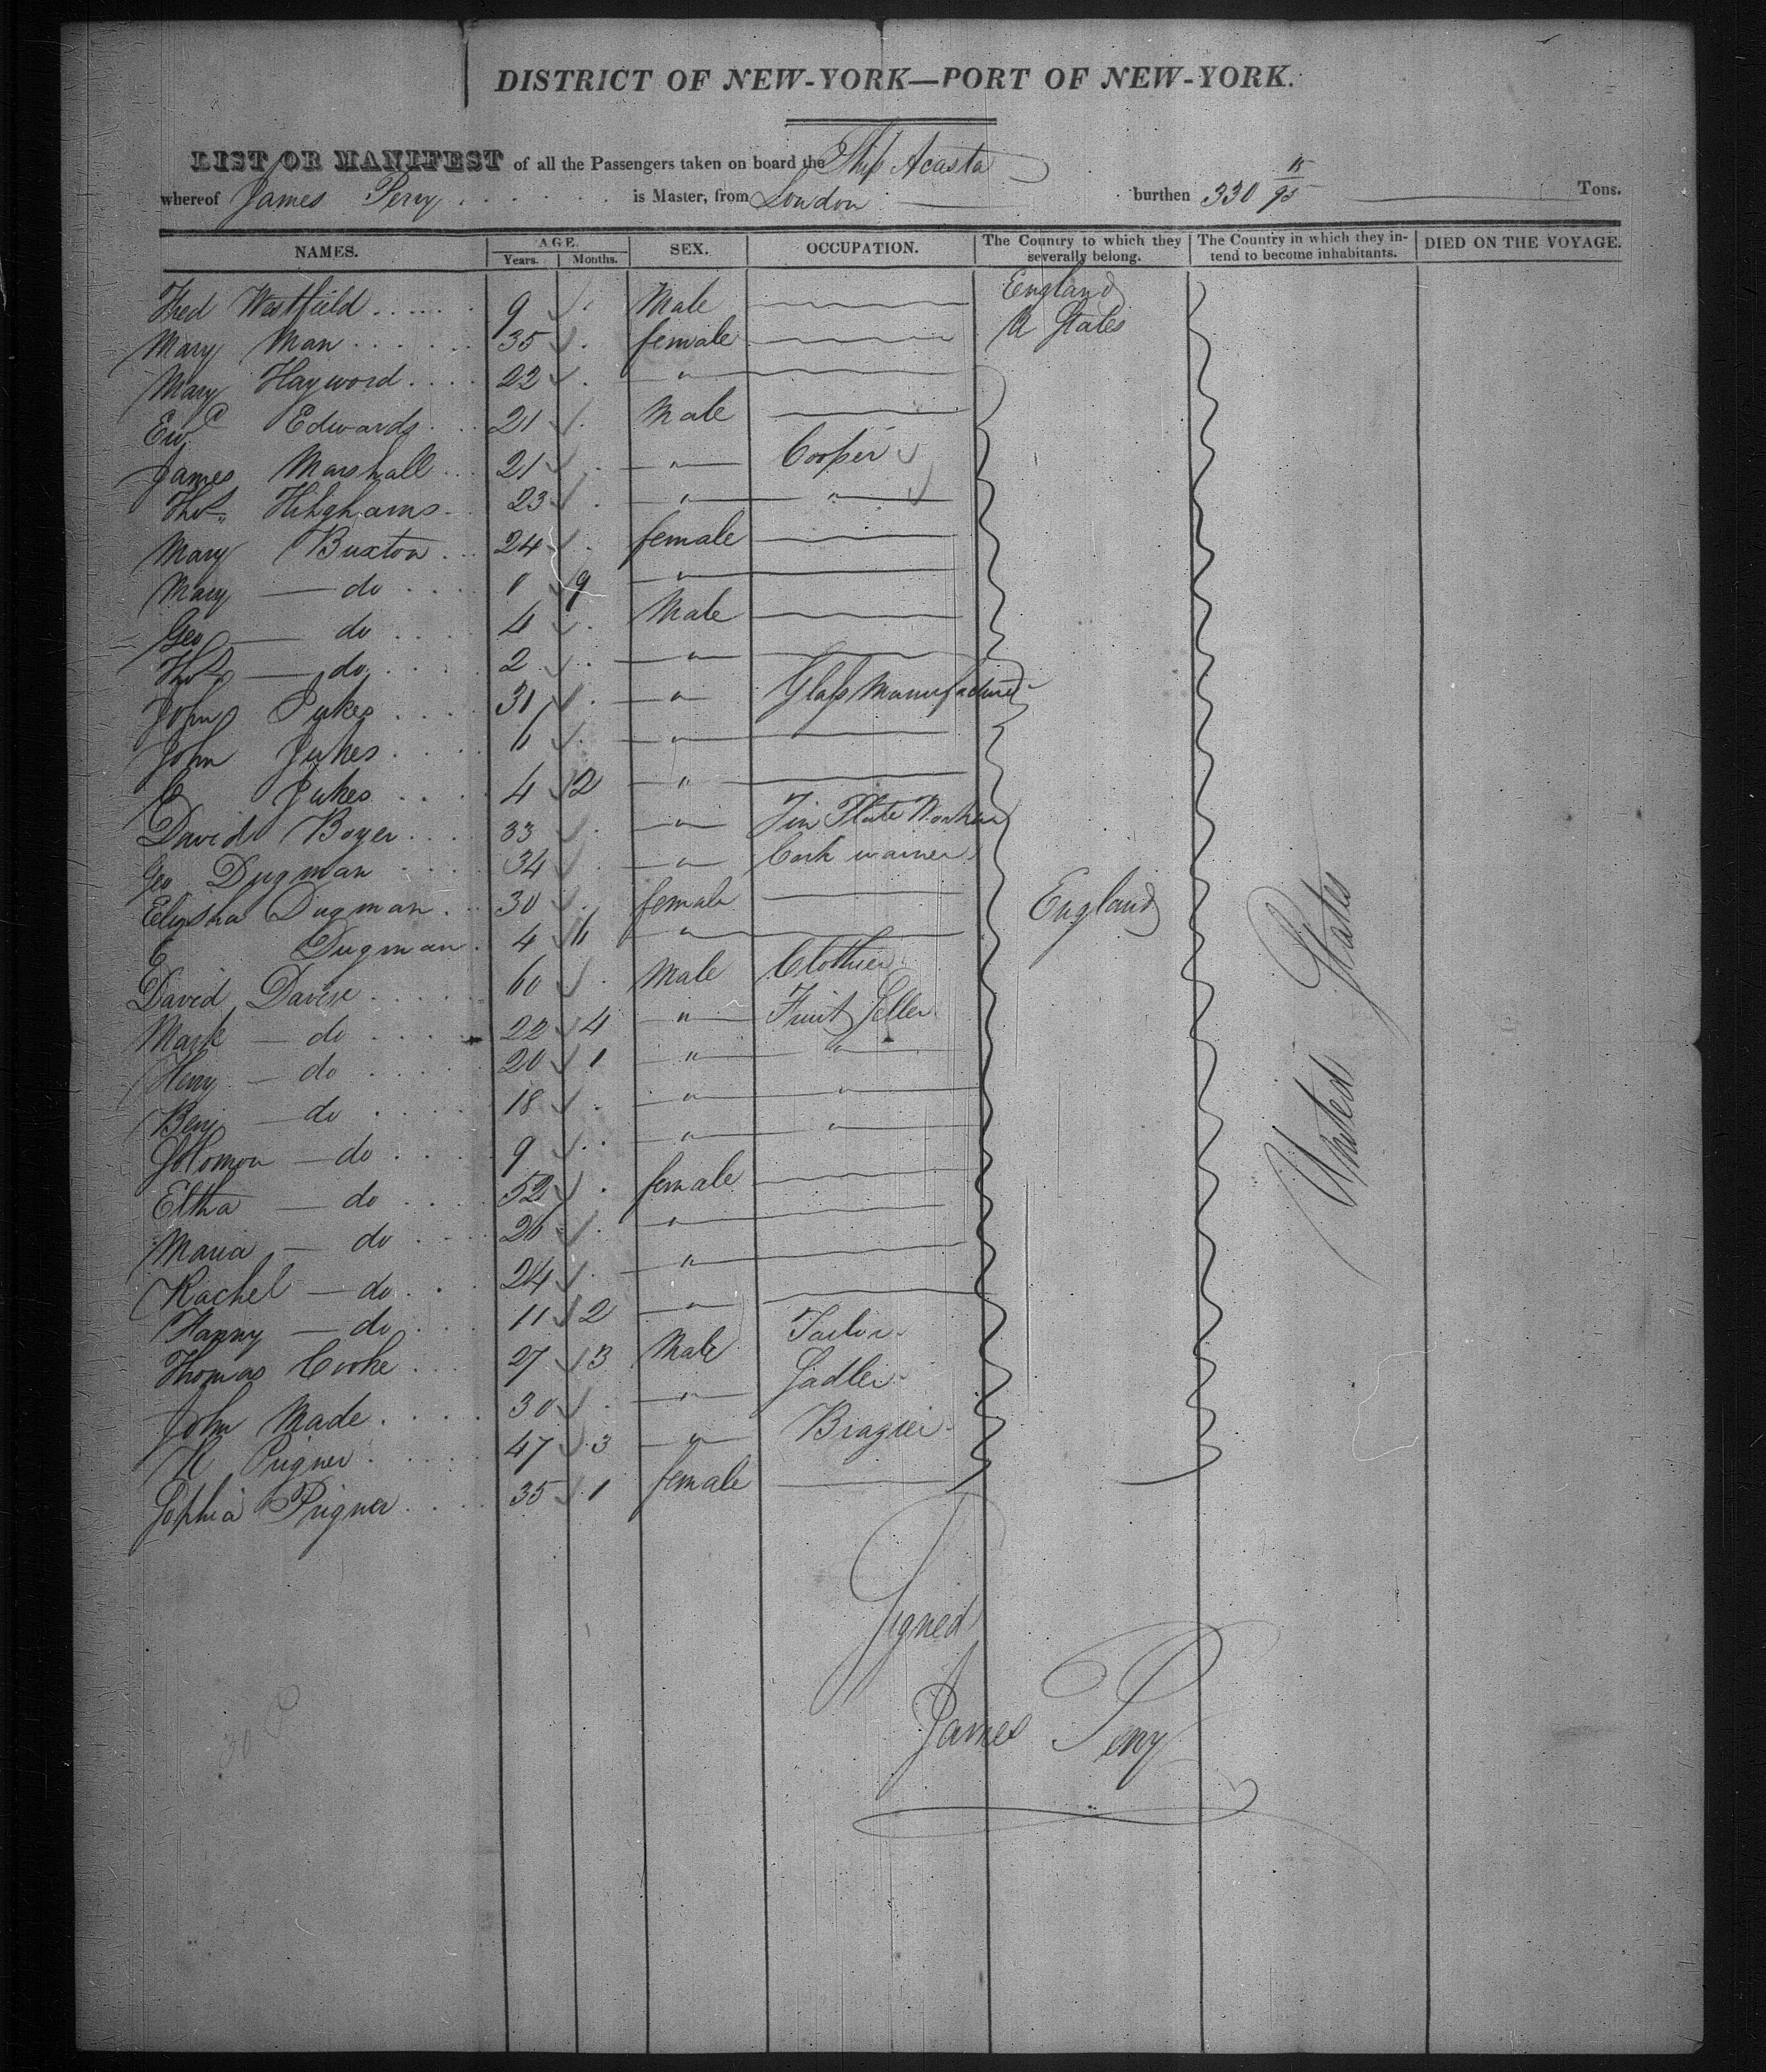 DISTRICT OF NEW-YORK—PORT OF NEW-YORK.
LIST OR MANIFEST of all the Passengers taken on board the Ship Acasta
whereof James Perry is Master, from London burthen 330 15/95 Tons.
NAMES. AGE. Years. Months. SEX. OCCUPATION. The Country to which they severally belong. The Country in which they intend to become inhabitants. DIED ON THE VOYAGE.
Fred Westfield 9 Male England
Mary Man 35 female U States
Mary Hayword 22 "
Edwards 21 Male
James Marshall 21 " Cooper
Thos Hihghams 23 " "
Mary Buxton 24 female
Mary do 1 9 "
Geo do 4 Male
Thos do 2 "
John Jukes 31 " Glass Manufacturer
John Jukes 6 "
E Jukes 4 2 "
David Boyer 33 " Tin Plate Worker
Geo Dugman 34 "
Elysha Dugman 30 female England
E Dugman 4 6 "
David Davise 60 Male Clothier
Mark do 22 4 " Fruit Seller
Henry do 20 1 " "
Benj do 18 " "
Solomon do 9 " "
Eltha do 52 female
Maria do 26 "
Rachel do 24 "
Hanny do 11 2 "
Thomas Cooke 27 3 Male Tailor
John Made 30 " Sadler
Prigner 47 3 " Brazier
Sophia Prigner 35 1 female
United States
Signed
James Perry
30